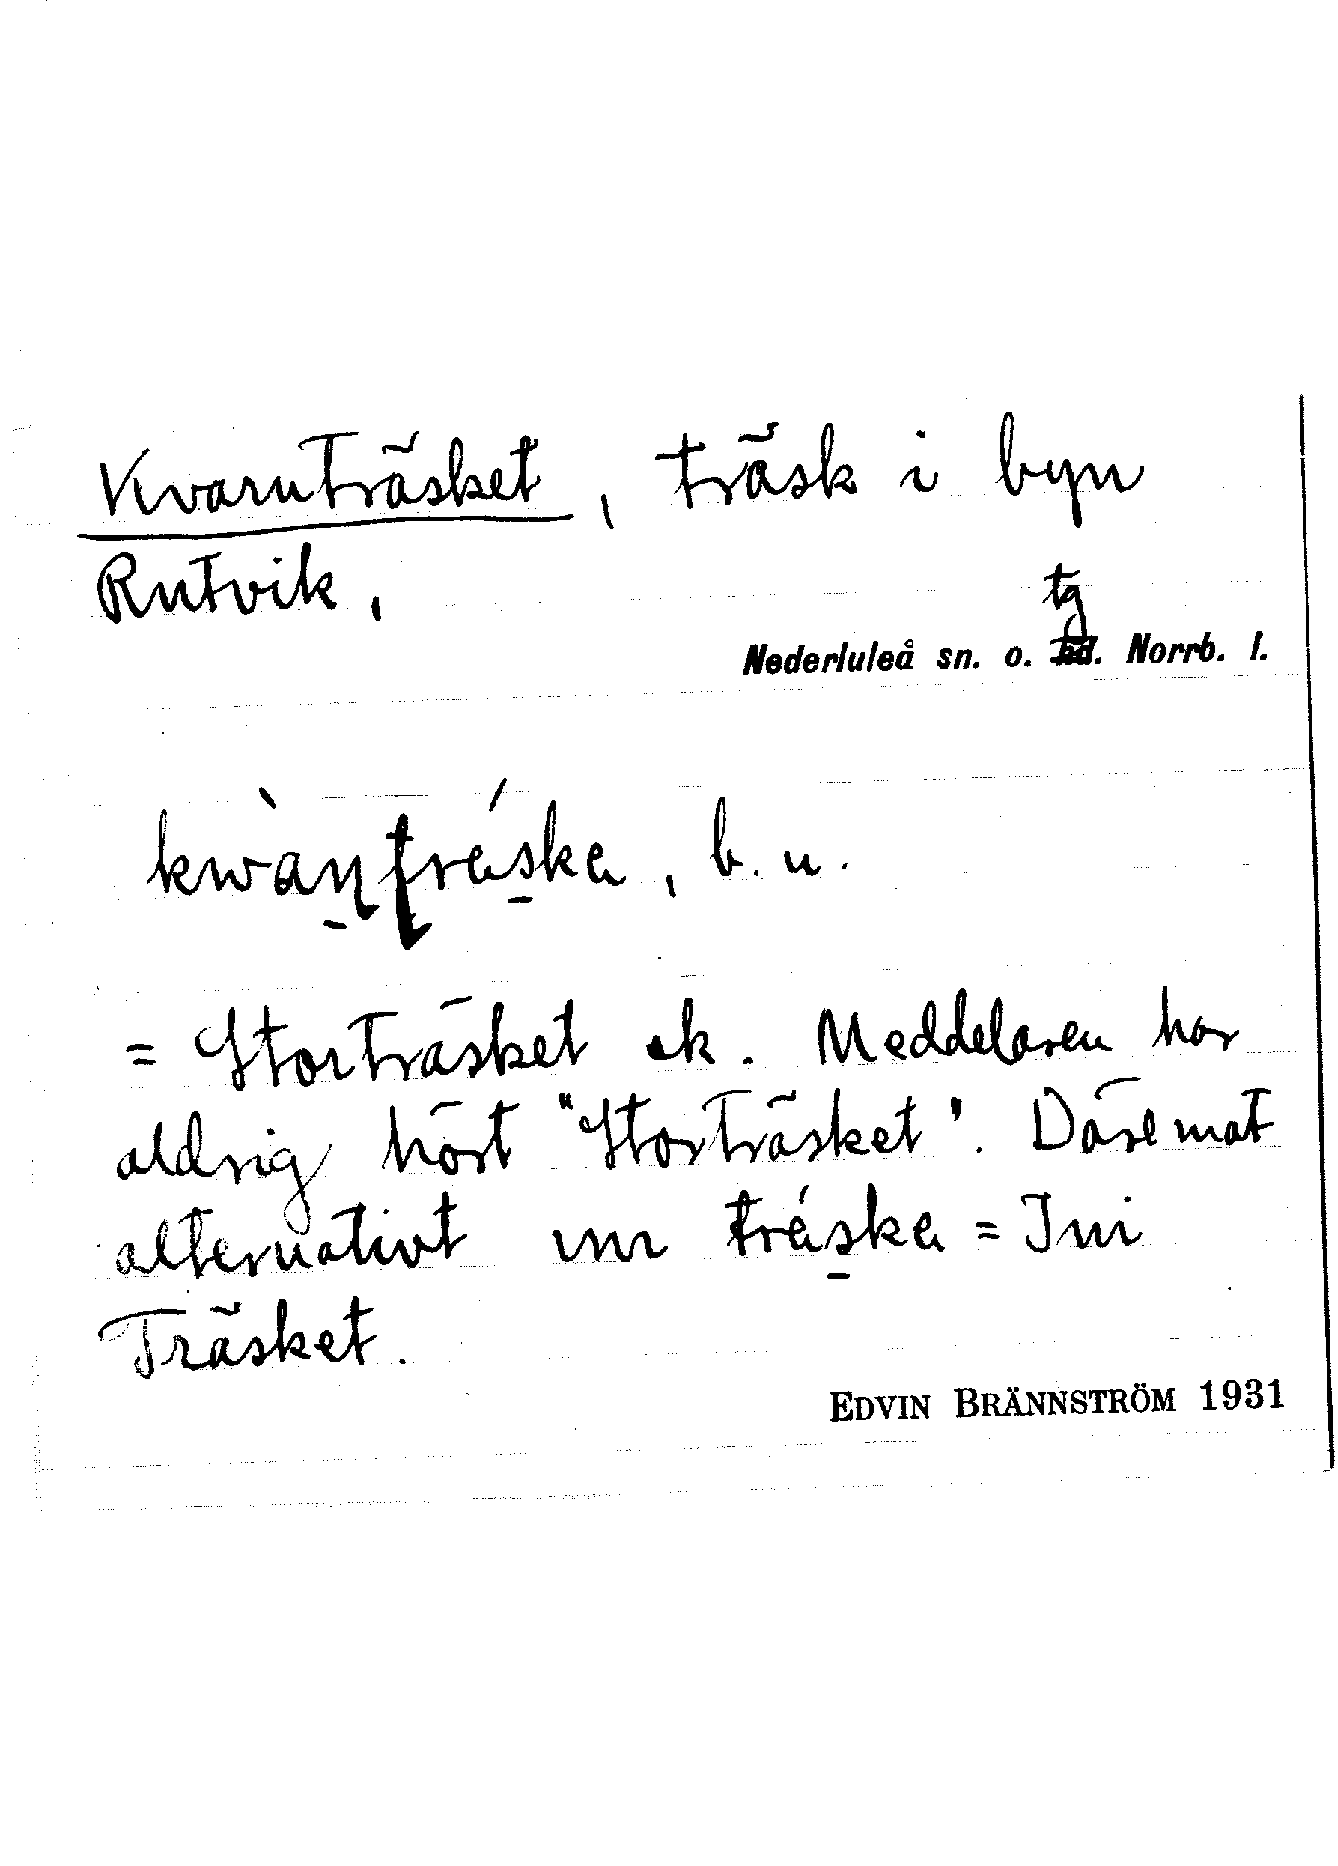 Kvarnträsket, träsk i byn
Rutvik,
tg
Nederluleå sn. o. hd. Norrb. l.
kwàn̠tráska, b. u.
= Storträsket ek. Meddelaren har
aldrig hört "Storträsket". Däremot
alternativt inr tráska = Ini
Träsket.
EDVIN BRÄNNSTRÖM 1931